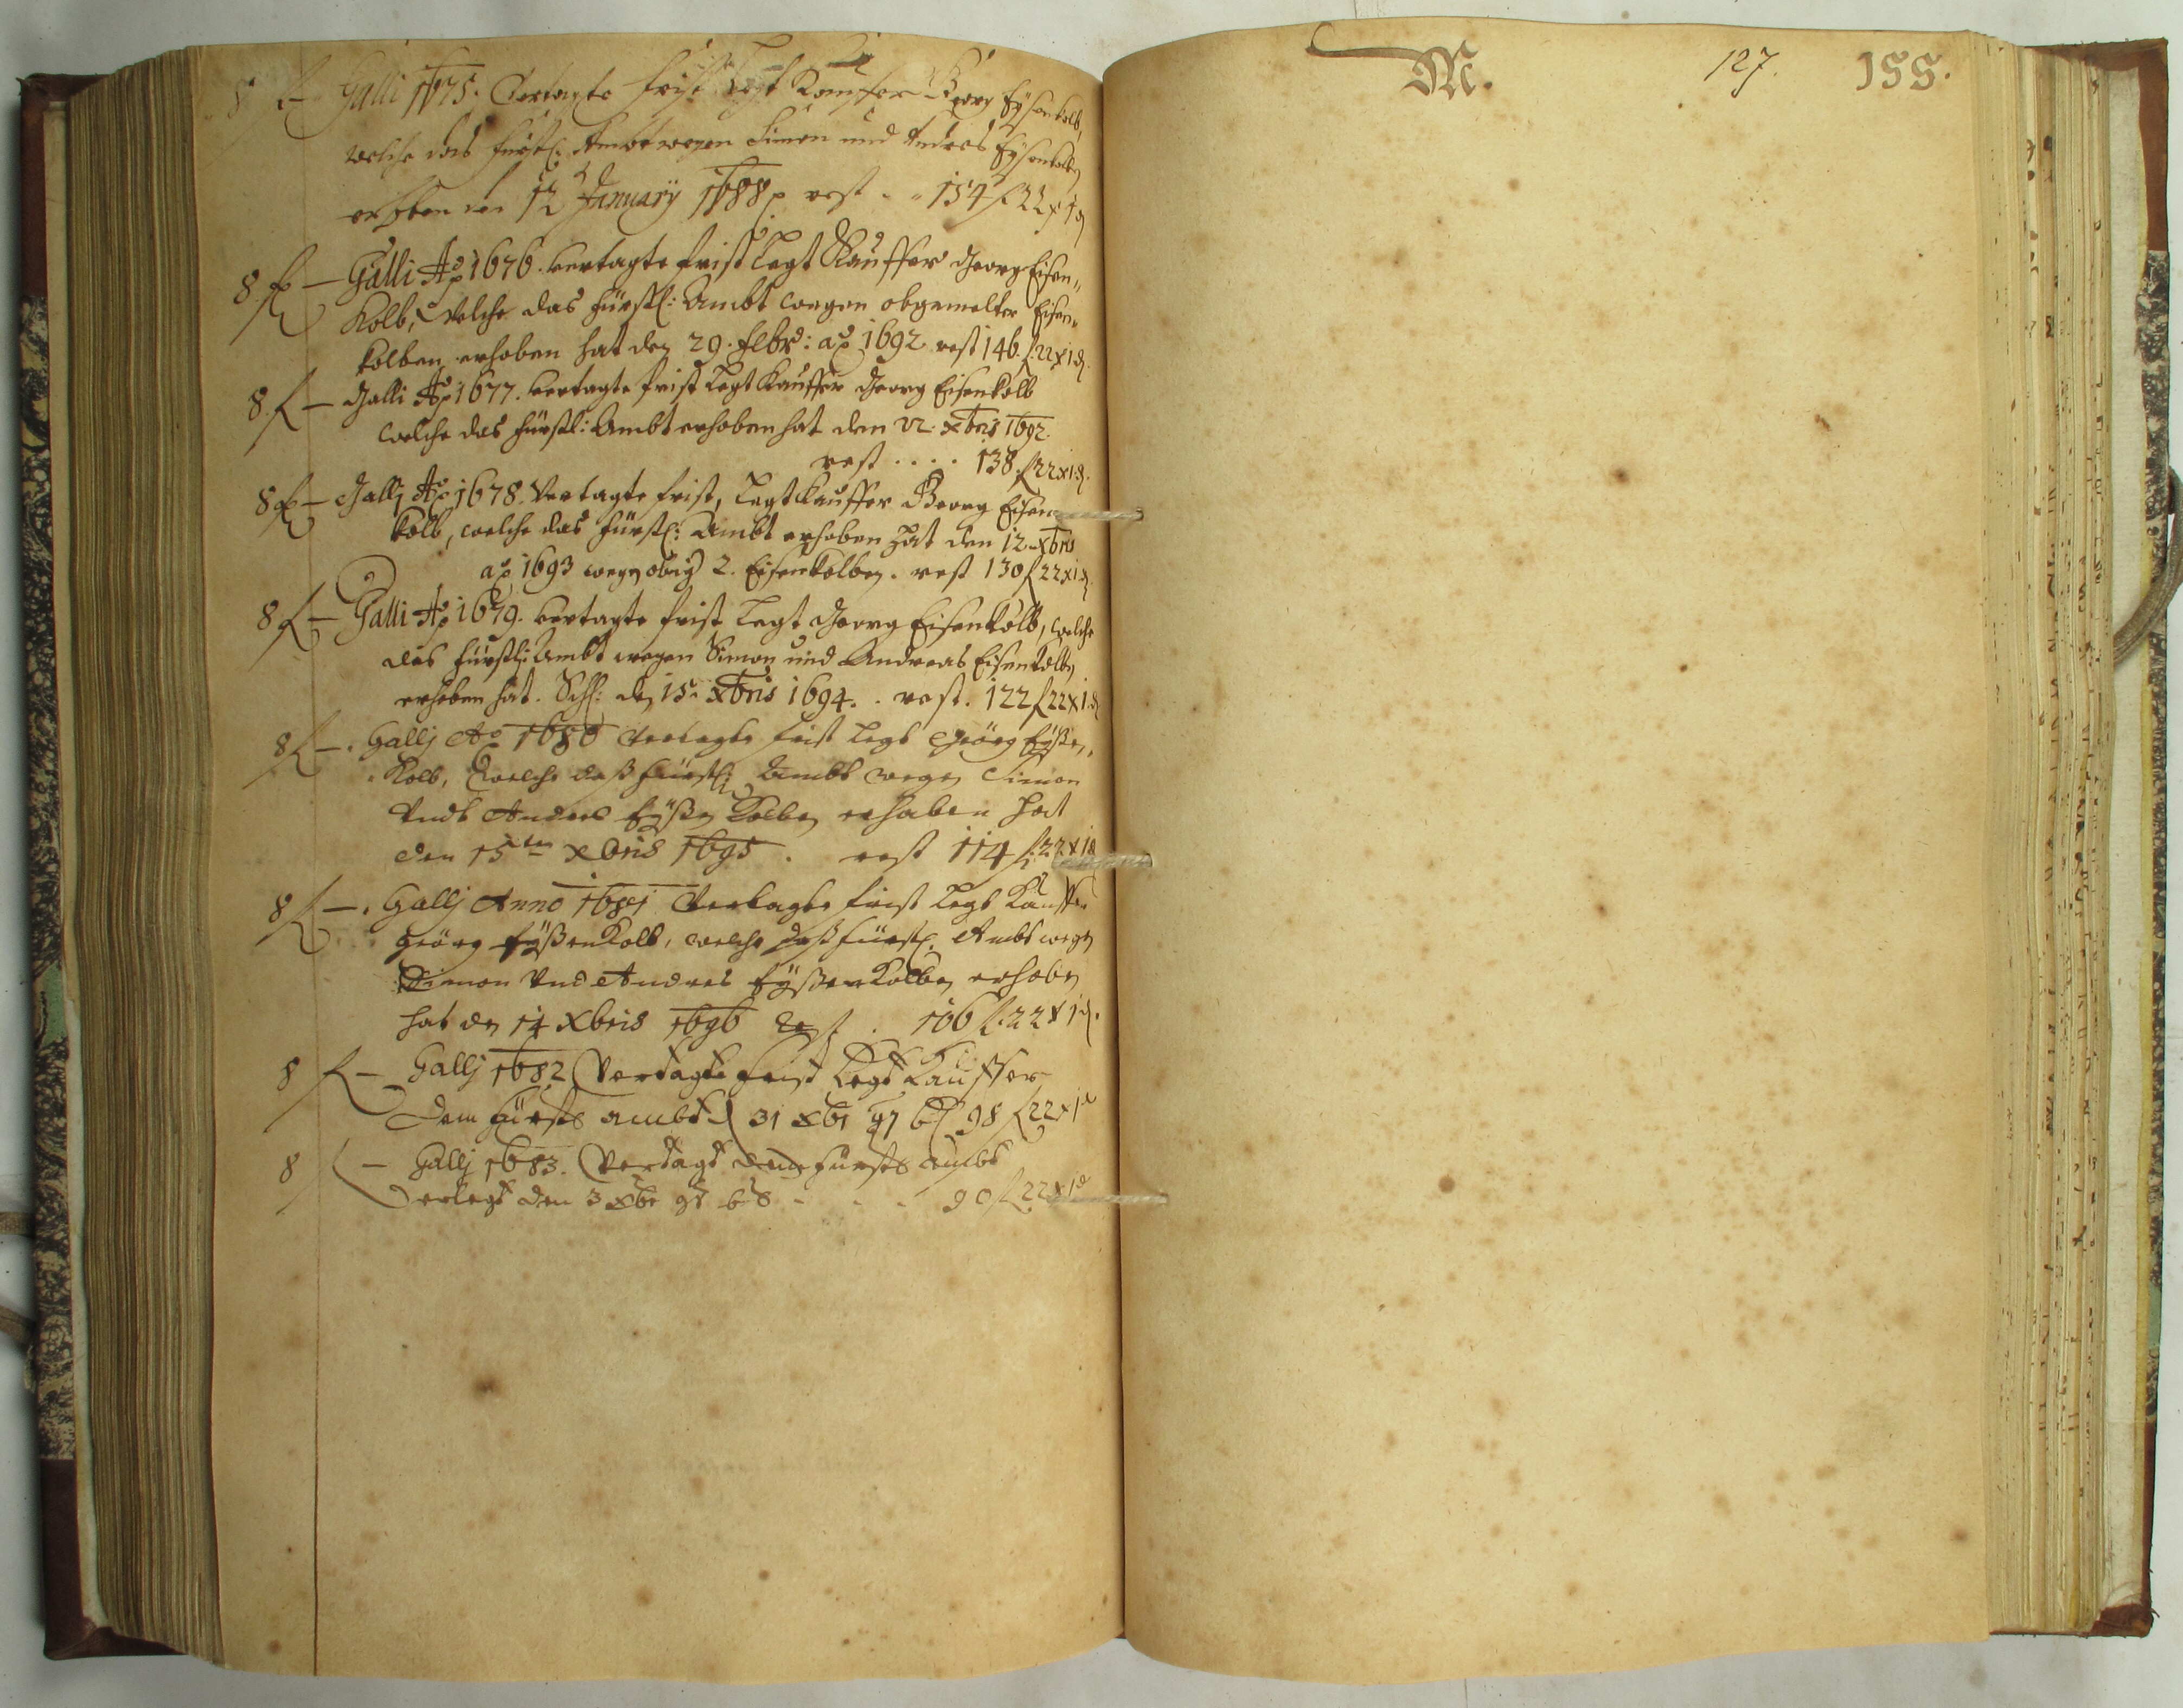 8 f — Galli 1675. Vertagte frist legt Kauffer Georg Eysenkolb,
welche das fürstl. Ambt wegen Simon und Andres Eysenkolb
erhoben den 12 January 1688 rest . . 154 f 22 x 1 d
8 f — Galli Ao 1676. vertagte frist legt Kauffer Georg Eisen„
Kolb, Welche das fürstl: Ambt wegen obgemelter Eisen„
kolben erhoben hat den 29. Febr: ao 1692 rest 146. f 22 x 1 d.
8 f — Galli Ao 1677. vertagte frist legt Kauffer Georg Eisenkolb
welche das fürstl: Ambt erhoben hat den xbris 1692.
rest . . . . 138. f 22 x 1 d.
8 f — Gallj Ao 1678. Vertagte frist, legt Kauffer Georg Eisen
kolb, welche das fürstl: Ambt erhoben hat den 12 xbris
ao 1693 wegen obig 2. Eisenkolben. rest 130 f 22 x 1 d.
8 f — Galli Ao 1679. vertagte frist legt Georg Eisenkolb, welche
das fürstl: Ambt wegen Simon und Andreas Eisenkolb
erhoben hat. den 15 xbris 1694. . rest. 122 f 22 x 1 d
8 f — . Gallj Ao 1680 vertagte frist legt Geörg Eÿßen„
Kolb, Welche daß fürstl: Ambt wegen Simon
Undt Andres Eÿßen Kolben erhaben hat
den 15ten xbris 1695 . rest 114 f 22 x 1 d
8 f — . Gallj Anno 1681 Vertagte frist legt Kauffer
Geörg EÿßenKolb, welche daß fürstl. Ambt wegen
Simon Und Andres EÿßenKolben erhoben
hat den 14 Xbris 1696 Rest . 106 f 22 x 1 d.
8 f — Gallj 1682 Vertagte frist Legt Kauffer
Dem fürstl ambt 31 xbr 97 98 f 22 x 1 d
8 f — Gallj 1683. Vertagt dem fürstl ambt
erlegt den 3 xbr 98 . . . 90 f 22 x 1 d
M. 127. 155.